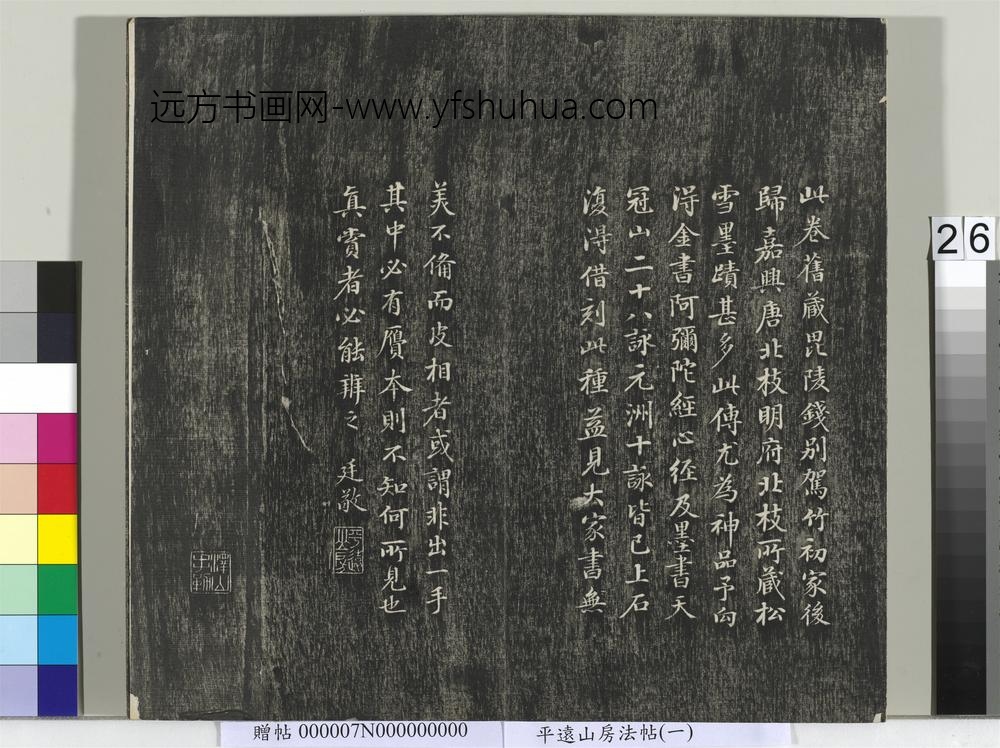 远方书画网-www.yfshuhua.com
此卷舊藏毘陵錢別駕竹初家後
歸嘉興唐北枝明府北枝所藏松
雪墨蹟甚多此傳尤為神品予向
得金書阿彌陀經心徑及墨書天
冠山二十八詠元洲十詠皆已上石
復得借刻此種益見大家書無
美不備而皮相者或謂非出一手
其中必有贋本則不知何所見也
真賞者必能辨之 廷敬
26
贈帖 000007N000000000
平遠山房法帖(一)